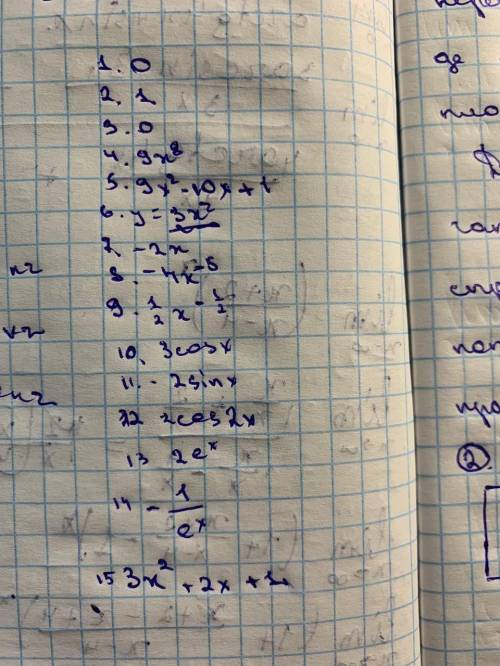 1. 0
2. 1
3. 0
4. 9x⁸
5. 9x² - 10x + 1
6. y = 3x²
7. - 2x
8. - 4x⁻⁵
9. 1/2 x^(-1/2)
10. 3cosx
11. - 2sinx
12 2cos2x
13 2eˣ
14 - 1/eˣ
15 3x² + 2x + 1
де
пло
②